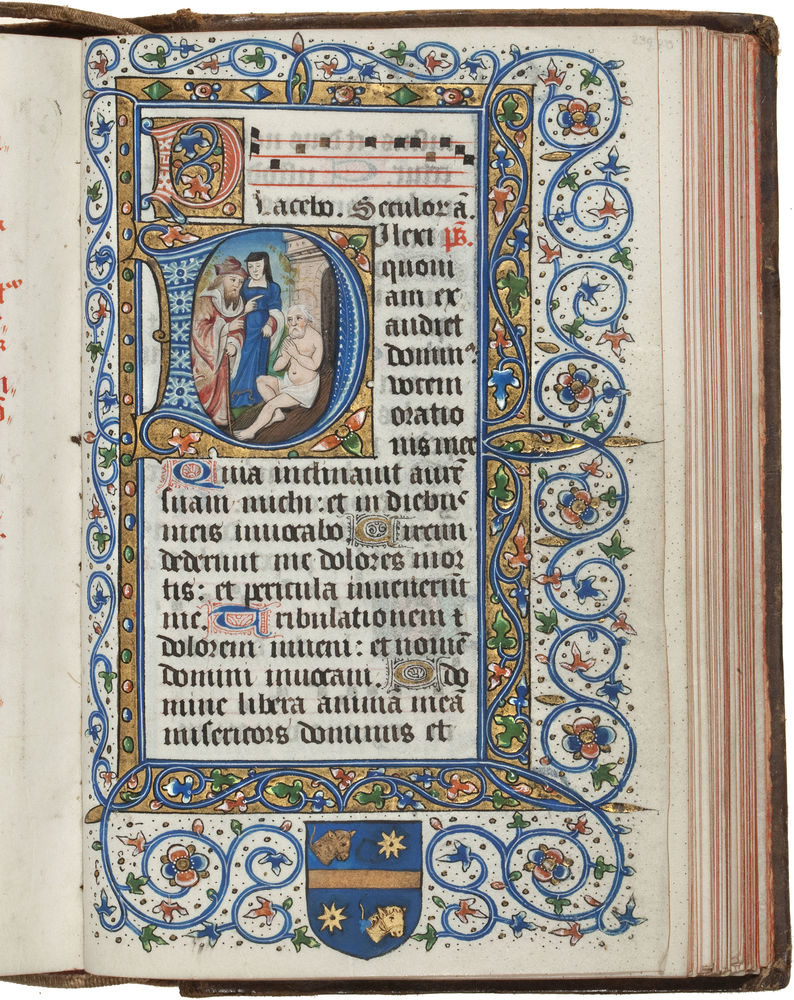 Placebo. Seculorā.
Dilexi ps.
quoni
am ex
audiet
dominᵘˢ
vocem
oratio
nis mee
Quia inclinavit aurē
suam michi: et in diebus
meis invocabo Circum
dederunt me dolores mor
tis: et pericula invenerūt
me Tribulationem ⁊
dolorem inveni: et nomē
domini invocavi. O do
mine libera animā meā
misericors dominus et